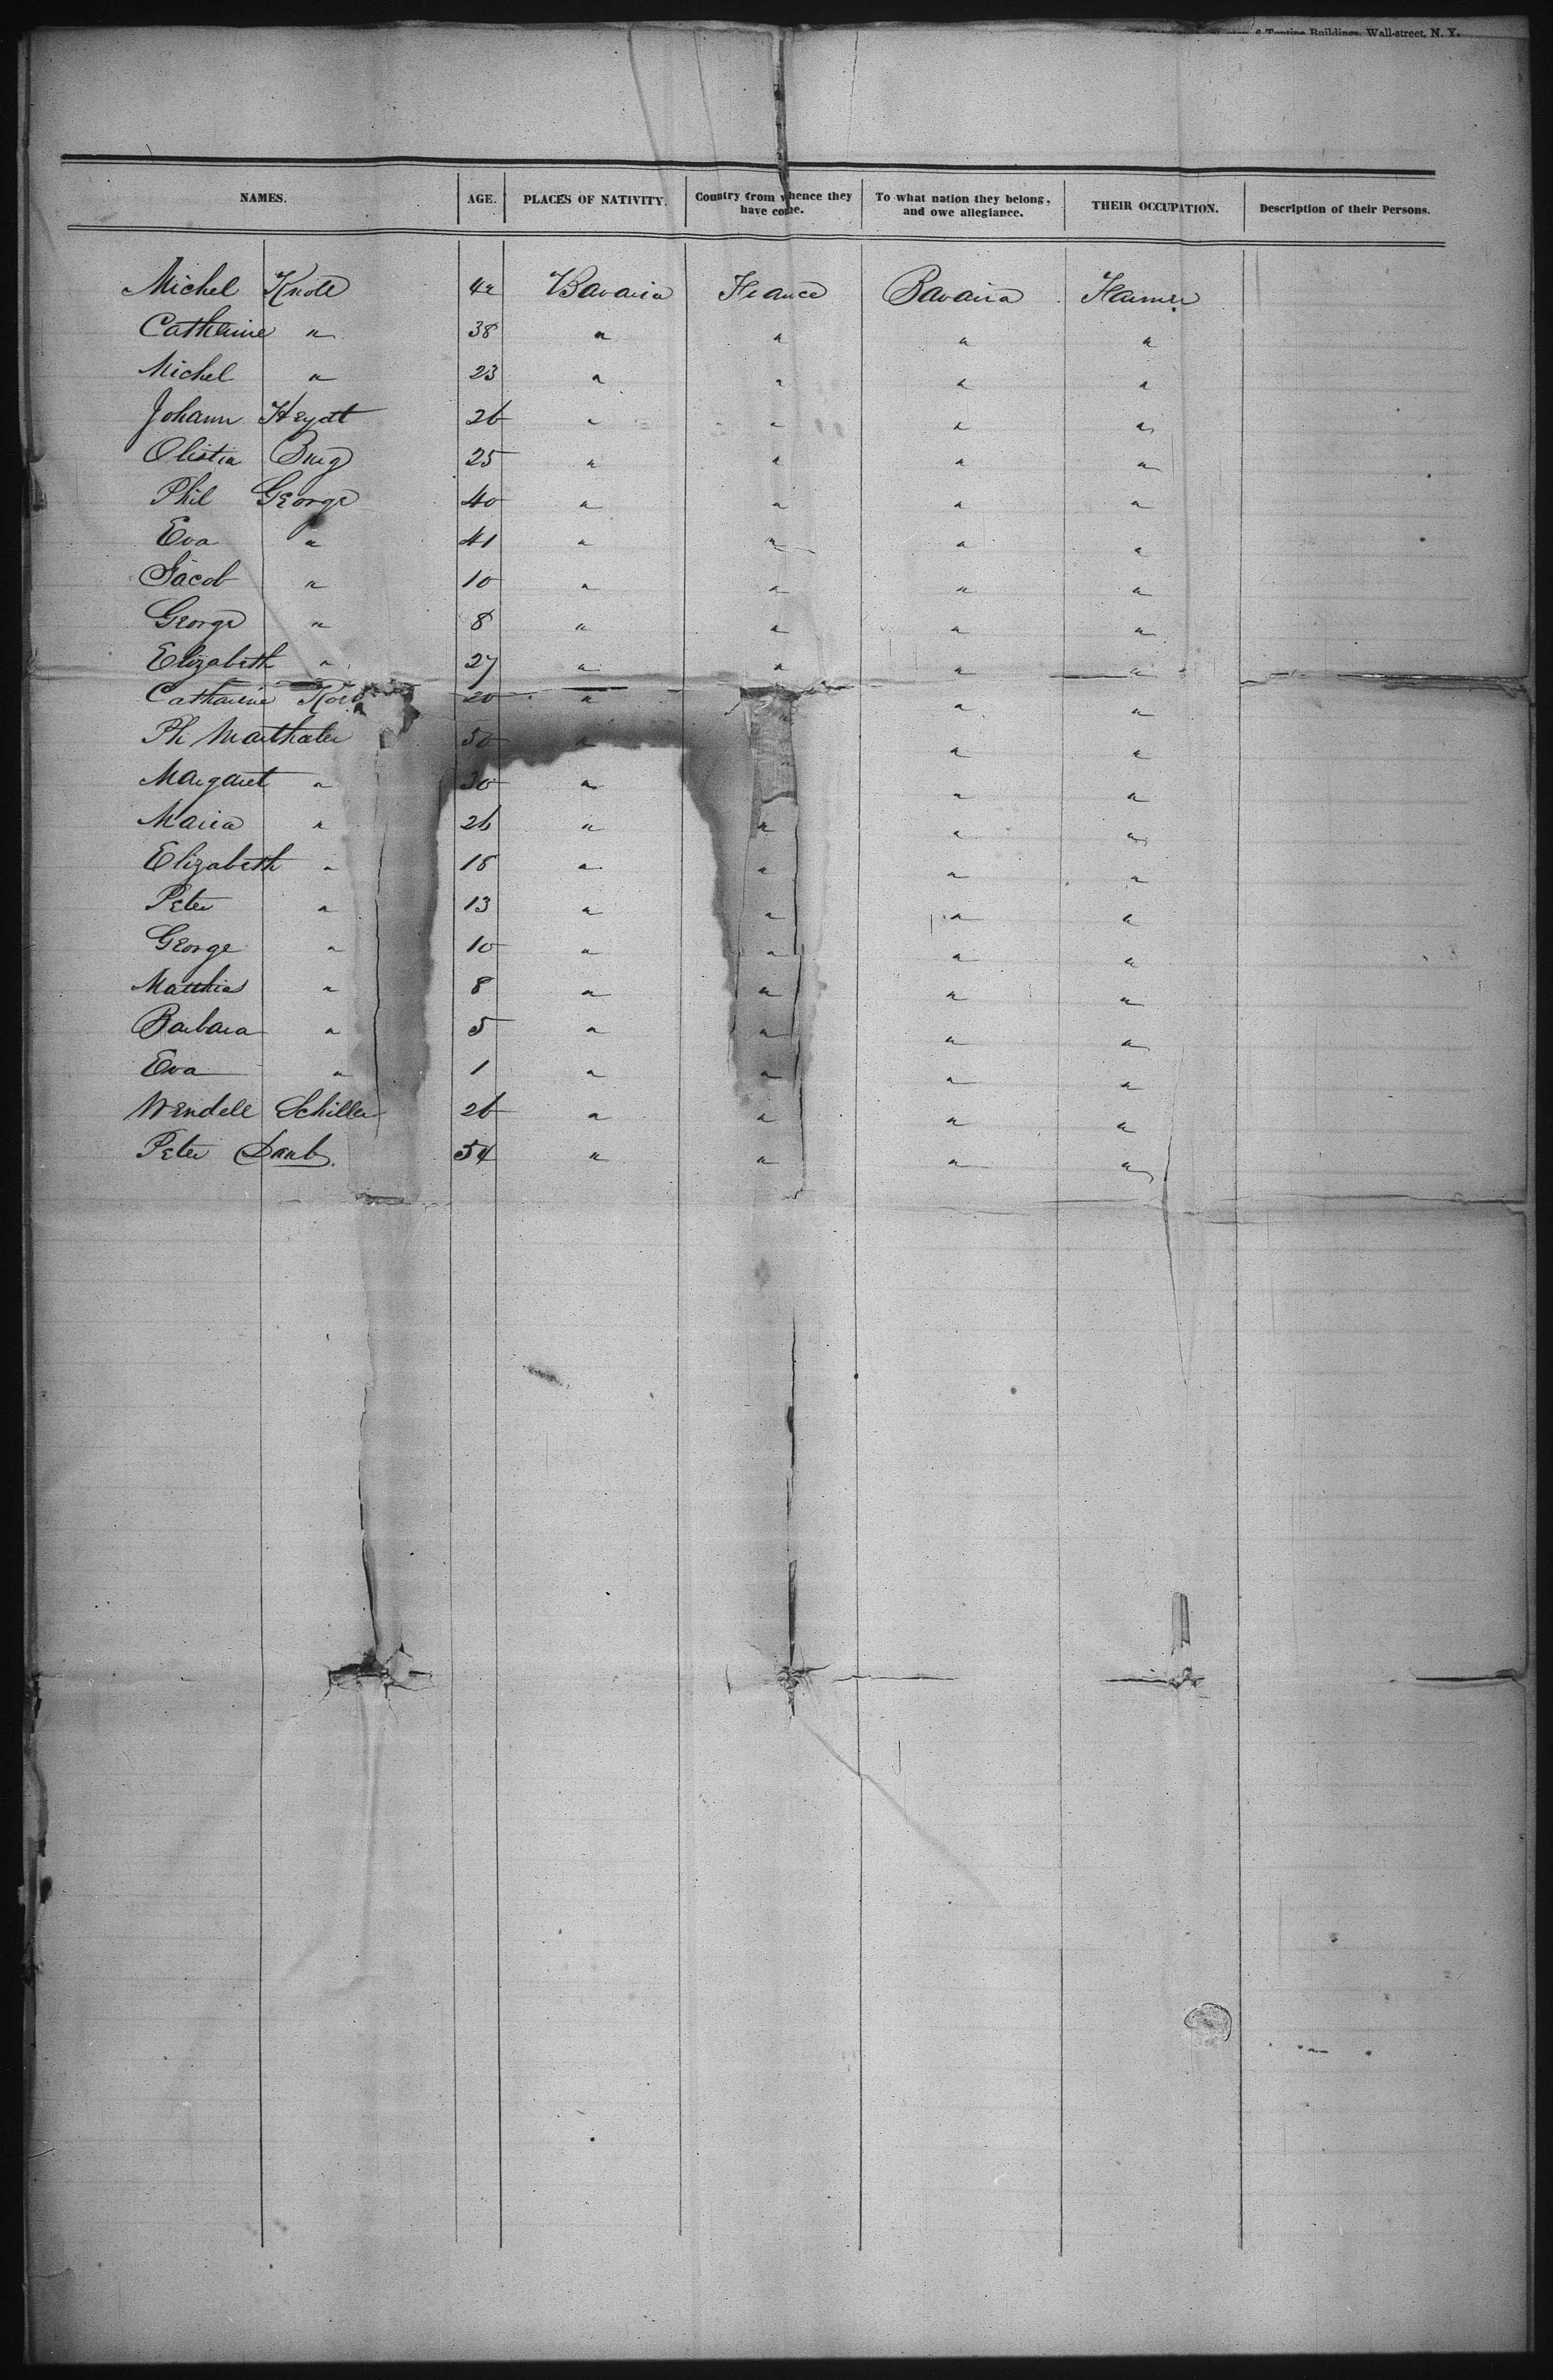 6 Tontine Buildings, Wall-street, N. Y.
NAMES. AGE. PLACES OF NATIVITY. Country from whence they have come. To what nation they belong, and owe allegiance. THEIR OCCUPATION. Description of their Persons.
Michel Knoll 42 Bavaria France Bavaria Farmer
Catherine " 38 " " " "
Michel " 23 " " " "
Johann Heydt 26 " " " "
Burg 25 " " " "
Phil George 40 " " " "
Eva " 41 " " " "
Jacob " 10 " " " "
George " 8 " " " "
Elizabeth " 27 " " " "
Catharine 20 " " "
Ph Marthaler 50 " " "
Margaret " " " "
Maria " 26 " " " "
Elizabeth " " " " "
Peter " 13 " " " "
George " 10 " " " "
Matthias " 8 " " " "
Barbara " 5 " " " "
Eva " 1 " " " "
Wendell Schiller 26 " " " "
Peter Daub. 54 " " " "